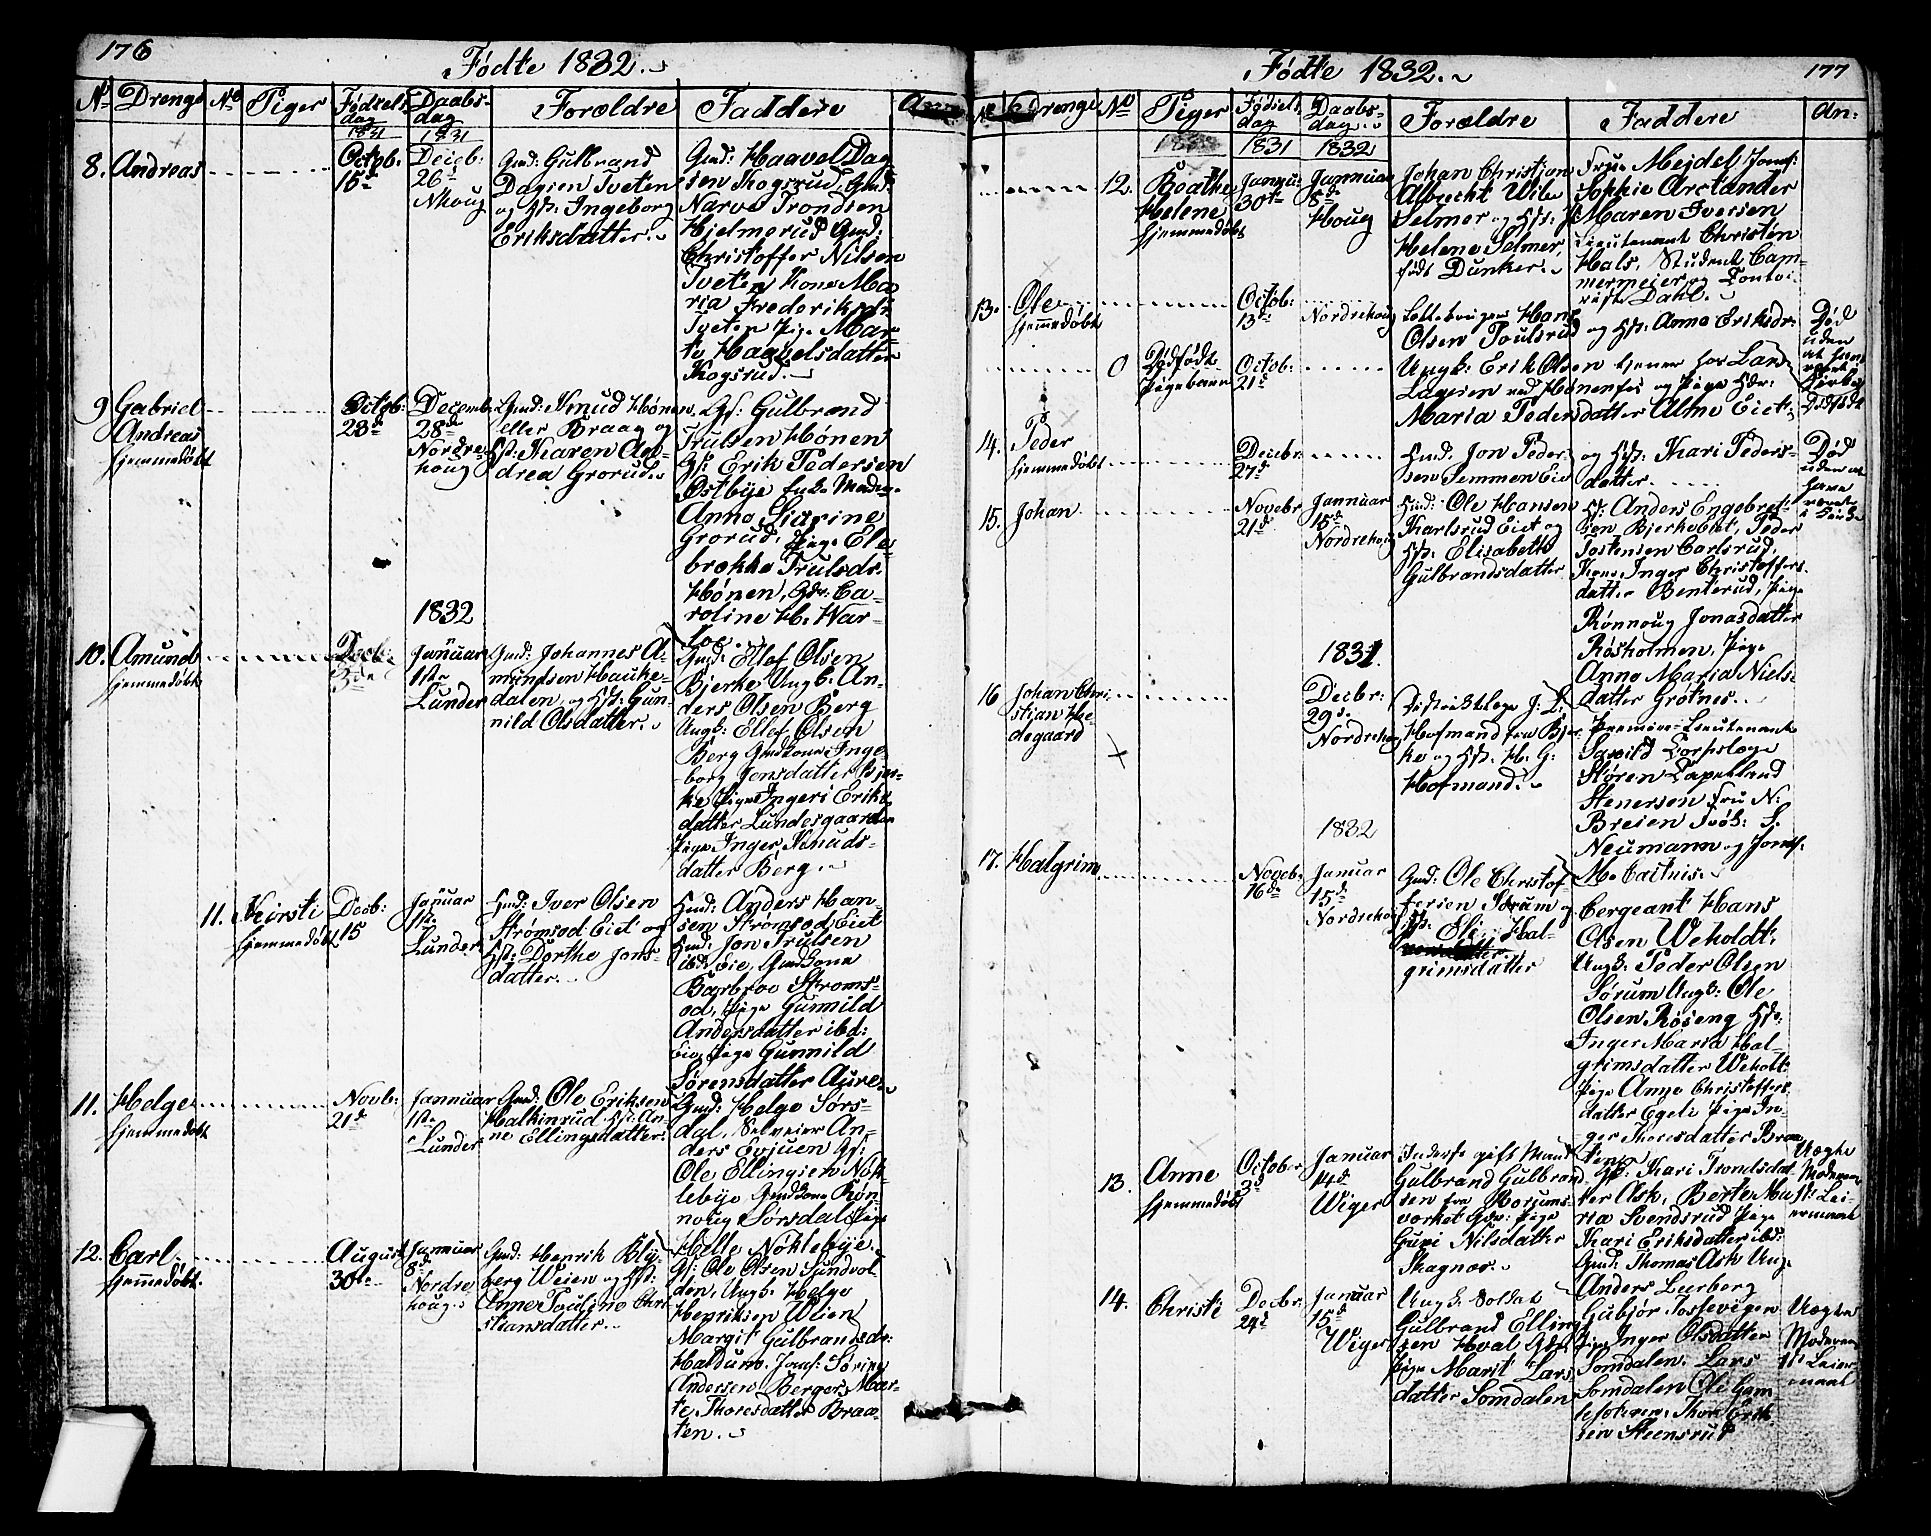 176
Fødte 1832.
No Drenge No Piger Fødsels dag Daabs- dag Forældre Faddere
1831 1831
8. Andreas
Octob:
15de
Deceb:
26de
Nhoug
Gmd: Gulbrand
Dagsen Tveten
og Hst: Ingeborg
Eriksdatter.
Gmd: Haavel Dag
sen Skogsrud, Gmd:
Narve Trondsen
Hjelmerud Gmd:
Christoffer Nilsen
Tveten Kone Ma
ria Frederiksdr
Tveten Pige Mar-
te Haavelsdatter
Skogsrud.
9 Gabriel
Andreas
hjemmedøbt
Octob:
23de
Decemb
28de
Nordre
houg
Gmd: Knud Hønen
eller Braag og
Hst: Karen An-
drea Grorud.
Gf: Gulbrand
Trulsen Hønen
Gf: Erik Pedersen
Østbye Enk. Madm.
Anne Sirine
Grorud, Pige Ele-
brække Trulsdr.
Hønen, Gdr: Ca-
roline H. War-
loe.
1832
10. Amund
hjemmedøbt
Deceb.
3de
Januar
1ste
Lunder
Gmd: Johannes A-
mundsen Hauke-
dalen, og Hst: Gun-
nild Olsdatter.
Gmd: Ellef Olsen
Bjerke Ungk: An-
ders Olsen Berg
Ungk: Ellef Olsen
Berg Gmdkone Inge-
borg Jonsdatter Bjer-
ke Pige Ingeri Eriks
datter Lundesgaarden
Pige Inger Knuds-
datter Berg.
11. Kirsti
hjemmedøbt
Decb:
15
Januar
1ste
Lunder
Hmd: Iver Olsen
Strømsod: Eiet og
Hst: Dorthe Jons-
datter.
Hmd: Anders Han-
sen Strømsod: Eiet
Hmd: Jon Trulsen
ibd: Eie, Gmdkone
Barbroe Strøms-
od, Pige Gunnild
Andersdatter ibd:
Eie, Pige Gunnild
Sørensdatter Aure
11. Helge
hjemmedøbt
Novb:
21de
Januar
1ste
Lunder
Gmd: Ole Eriksen
Halkinrud Hst: An-
ne Ellingsdatter.
Gmd: Helge Sørs-
dal. Selveier An-
ders Evjuen Gf:
Ole Ellingsen Nøk
lebye Gmdkone Røn-
noug Sørsdal Pige
Helle Nøklebye.
12. Carl
hjemmedøbt
August
30te
Januar
8de
Nordre
houg.
Gmd: Henrik Bly-
berg Weien og Hst:
Anne Pauline Chri-
stiansdatter.
Gf: Ole Olsen Sundvol
den, Ungk. Helge
Henriksen Wien
Margit Gulbrandsdr:
Haldum. Jomf: Sørine
Andersen Berger, Mar-
te Thoresdatter Braa-
ten.
177
Fødte 1832.
No Drenge No Piger Fødsels dag Daabs- dag Forældre Faddere An:
1831 1832
12. Beathe
Helene
hjemmedøbt
30te
Januar
8de
Houg
Johan Christian
Albrecht Wile
Selmer og Hst:
Helene Selmer,
født Dunker.
Frue Mejdel, Jomf:
Sophie Arctander
Maren Iversen
Lieutenant Christen
Hals, Student Cam-
mermeier og Contoi
rist Dahl.
13. Ole
hjemmedøbt
Octob:
13de
Nordrehoug
Hans
Olsen Poulsrud
og Hst: Anne Eriksdr
Død
uden
at
0 Dødfødt
Pigebarn
Octob:
21de
Ungk: Erik Olsen tjener hos Land
ved Hønenfos og Pige
Maria Pedersdatter Alme Eiet
Dødfødt
14. Peder
hjemmedøbt
Decbr
27de
Hmd: Jon Peder-
sen Semmen Eie
og Hst: Kari Peders-
datter
Død
uden at
have
været
i Kirke
15. Johan
Novebr
21de
Januar
15de
Nordrehoug
Hmd: Ole Hansen
Karlsrud Eiet og
Hst: Elisabeth
Gulbrandsdatter
Hf: Anders Engebret-
sen Bjerkebiet, Peder
Jostensen Carlsrud,
Kone Inger Christoffers
datter Benterud, Pige
Rønnoug Jonasdatter
Røsholmen, Pige
Anne Maria Niels-
datter Grøtnes.
1831.
16 Johan Chri-
stian He-
degaard
Decbr:
29de
Nordrehoug
Distriktslege J. L.
Hofmand fra Bjer
ke og Hst: H. G:
Hofmand.
Premier-Lieutenant
Corpslege
Støren Capelland
Stenersen Fru N:
Breien Frøk: S.
Neumann og Jomf.
1832
17. Halgrim
Novb.
16de
Januar
15de
Nordrehoug
Gmd: Ole Christof-
fersen Sørum og
Hst: Eli Hal-
grimsdatter
Cergeant Hans
Olsen Weholdt.
Ungk: Peder Olsen
Sørum Ungk: Ole
Olsen Røseng Hst:
Inger Maria Hal-
grimsdatter Weholt
Pige Anne Christoffers
datter Egeli Pige In-
ger Thoresdatter Braa
ten
13. Anne
hjemmedøbt
October
3de
Januar
14de
Wiger
Inderst gift Mand
Gulbrand Gulbrand
sen fra Modums
værket Pige
Guri Nilsdatter
Skagnes.
Hst: Kari Trondsdat-
ter Ask, Berte Ma-
ria Svendsrud Pige
Kari Eriksdatter ibd:
Gmd: Thomas Ask Ung.
Anders Leerberg
Uægte
Moderen
Leier
14. Christi
Decbr
29de
Januar
15de
Wiger
Ungk. Soldat
Gulbrand Elling
sen Hval
Pige Marit Lars
datter Somdalen
Gubjør
Pige Inger Olsdatter
Somdalen. Lars
Somdalen Ole
sen Steensrud
Uægte
Moderen
Leier